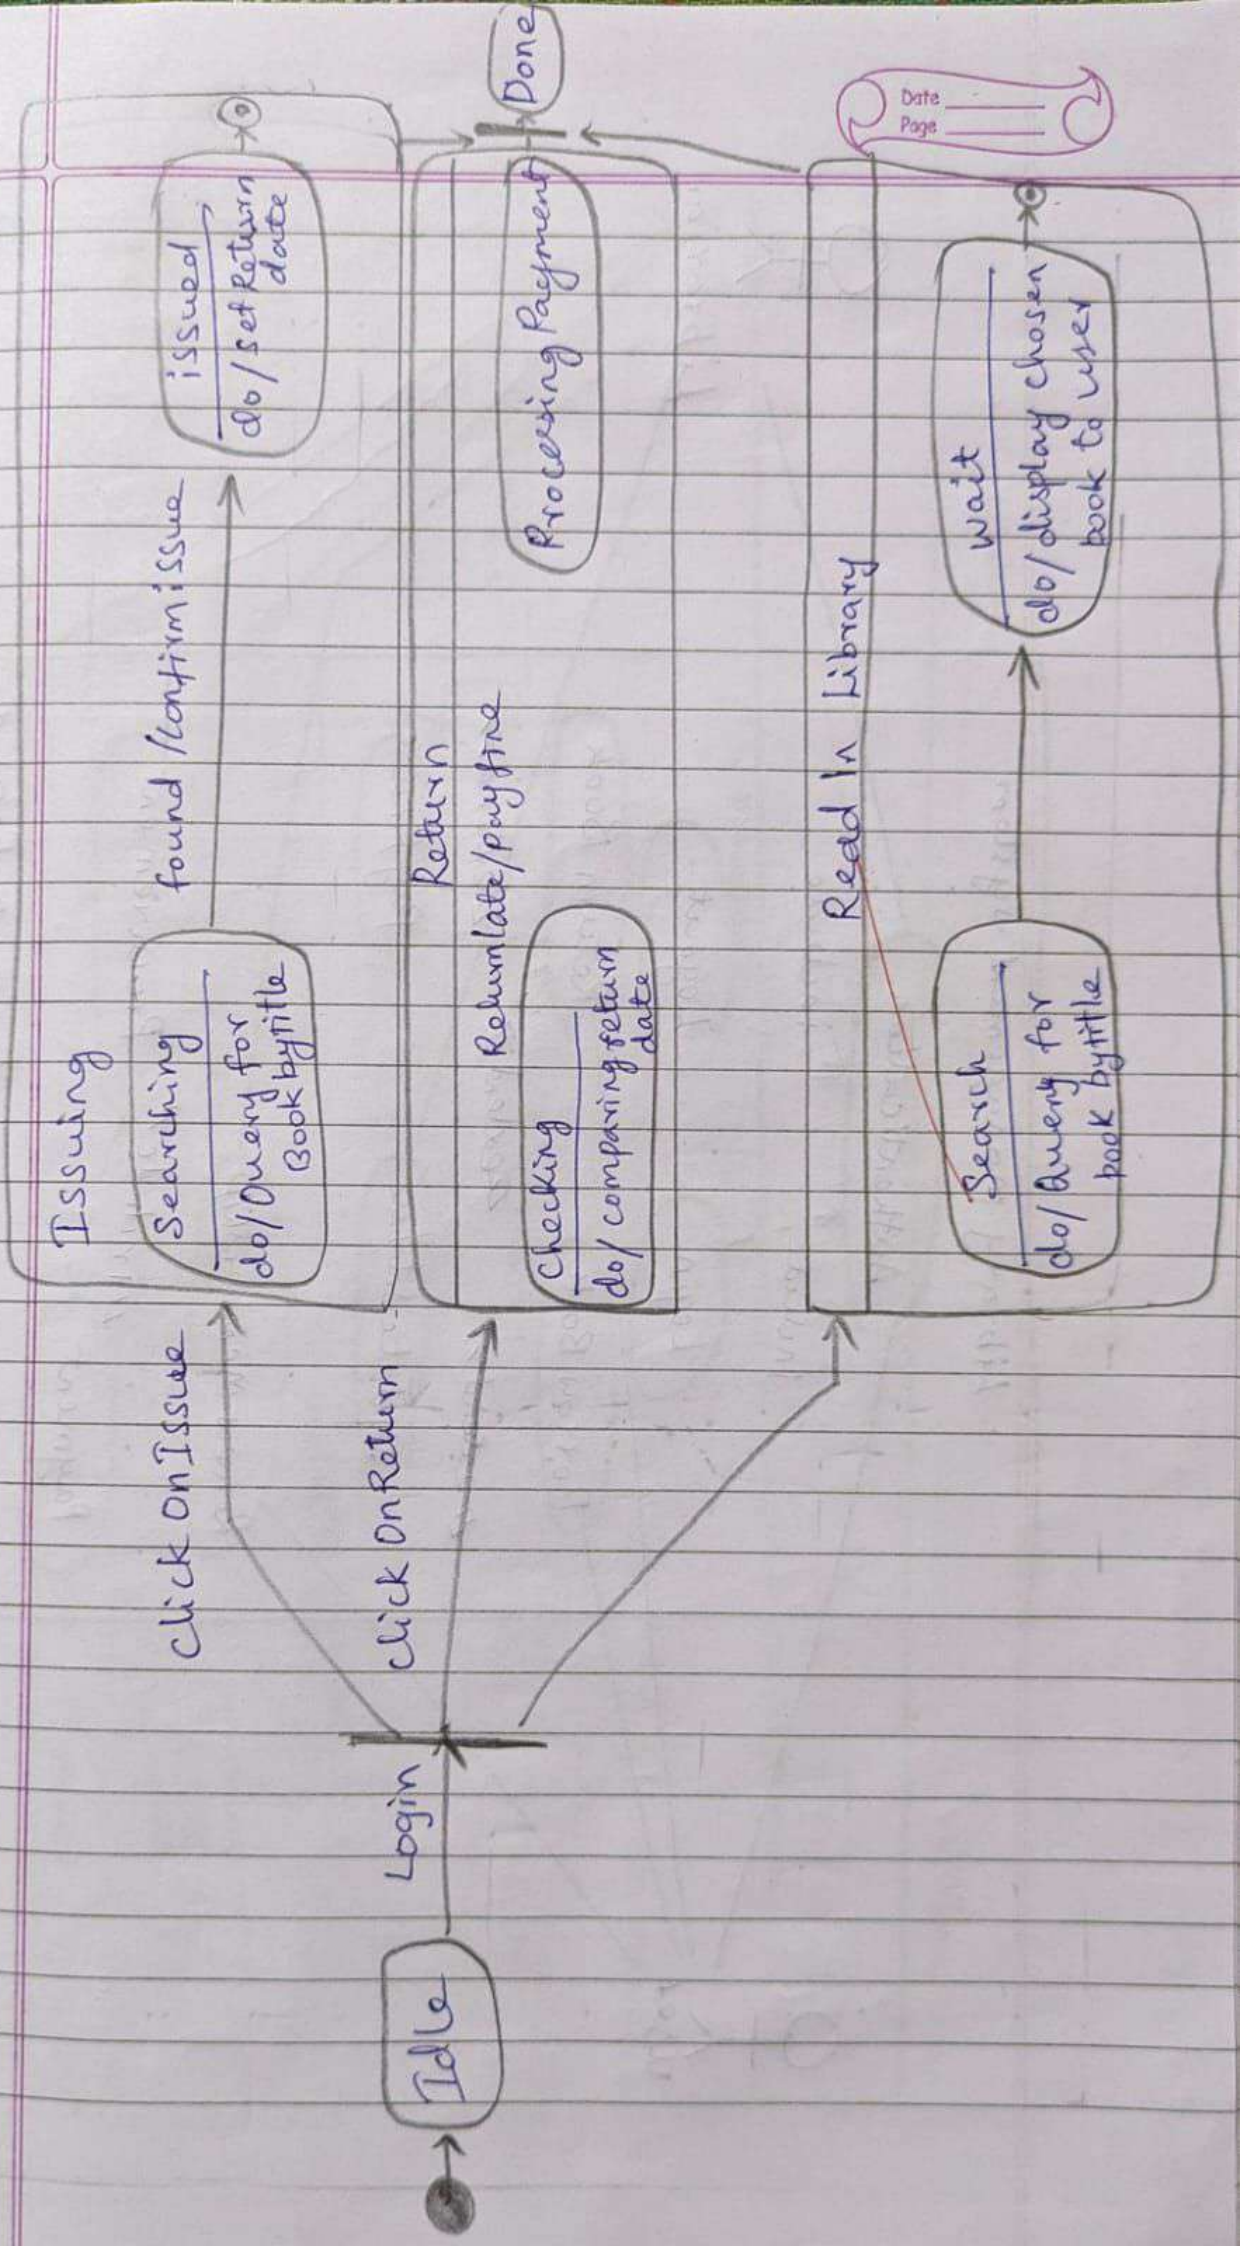 Idle
Login
Click OnIssue
Click OnReturn
Issuing
Searching
do/Query for
Book bytitle
found/confirmissue
issued
do/set Return
date
Return
Returnlate/payfine
Checking
do/comparing return
date
Processing Payment
Done
Read In Library
Search
do/Query for
book bytitle
wait
do/display chosen
book to user
Date
Page